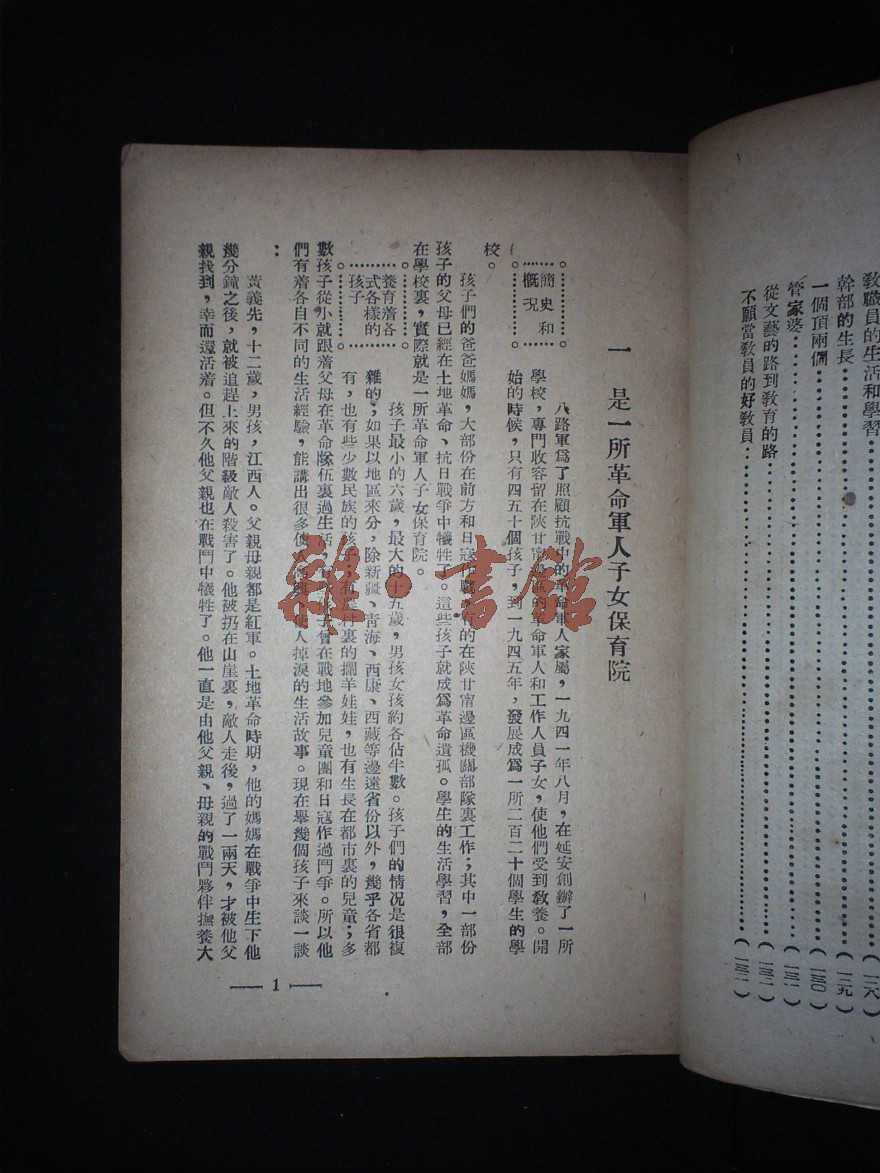 教職員的生活和學習……（一二八）
幹部的生長……（一二九）
一個頂兩個……（一三〇）
管家婆……（一三一）
從文藝的路到教育的路……（一三二）
不願當教員的好教員……（一三二）
一　是一所革命軍人子女保育院
簡史和
概况
八路軍爲了照顧抗戰中的革命軍人家屬，一九四一年八月，在延安創辦了一所
學校，專門收容留在陜甘甯邊區的革命軍人和工作人員子女，使他們受到教養。開
始的時候，只有四五十個孩子，到一九四五年，發展成爲一所二百二十個學生的學
校。
孩子們的爸爸媽媽，大部份在前方和日寇作戰，有的在陜甘甯邊區機關部隊裏工作；其中一部份
孩子的父母已經在土地革命、抗日戰爭中犧牲了。這些孩子就成爲革命遺孤。學生的生活學習，全部
在學校裏，實際就是一所革命軍人子女保育院。
養育着各
式各樣的
孩子
孩子最小的六歲，最大的十五歲，男孩女孩約各佔半數。孩子們的情况是很複
雜的；如果以地區來分，除新疆、青海、西康、西藏等邊遠省份以外，幾乎各省都
有，也有些少數民族的孩子；有農村裏的攔羊娃娃，也有生長在都市裏的兒童；多
數孩子從小就跟着父母在革命隊伍裏過生活，有的孩子曾在戰地參加兒童團和日寇作過鬥爭。所以他
們有着各自不同的生活經驗，能講出很多使人掉淚的生活故事。現在舉幾個孩子來談一談
：
黃義先，十二歲，男孩，江西人。父親母親都是紅軍。土地革命時期，他的媽媽在戰爭中生下他
幾分鐘之後，就被追趕上來的階級敵人殺害了。他被扔在山崖裏，敵人走後，過了一兩天，才被他父
親找到，幸而還活着。但不久他父親也在戰鬥中犧牲了。他一直是由他父親、母親的戰鬥夥伴撫養大
— 1 —
雜·書館